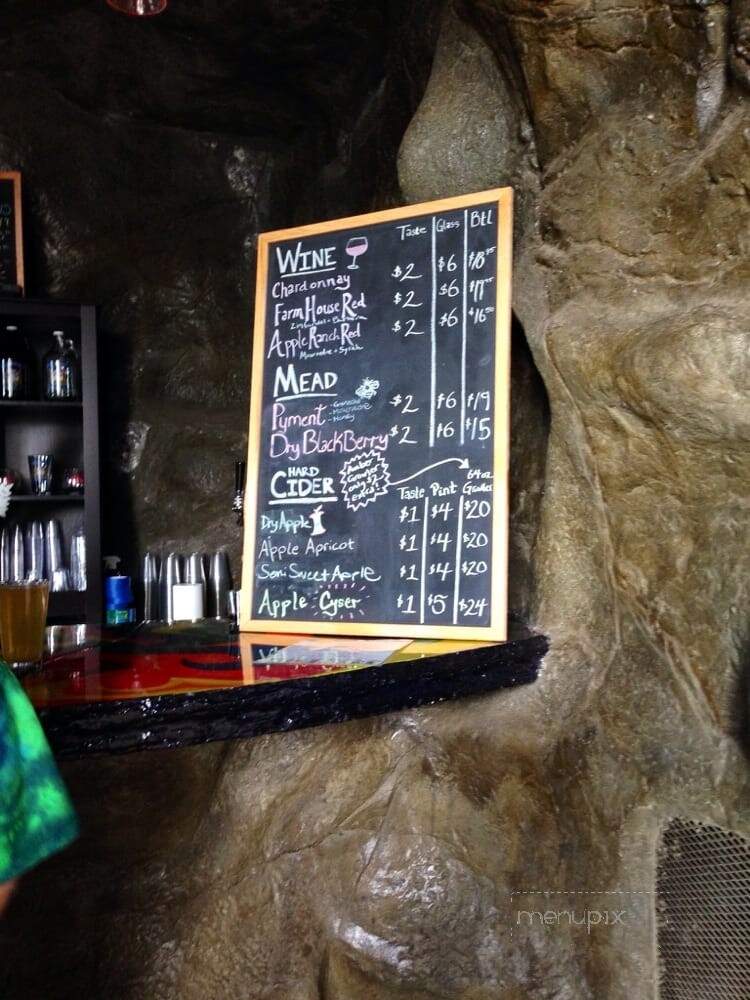 Taste Glass Btl
WINE
Chardonnay $2 $6
Farm House Red $2 $6
Apple Ranch Red $2 $6 $16.50
Mourvedre + Syrah
MEAD
Pyment $2 $6 $19
- Grenache
- Mourvedre
- Honey
Dry BlackBerry $2 $6 $15
HARD
CIDER
Amber
Growler
only $2
Extra!
64oz
Taste Pint Growler
Dry Apple $1 $4 $20
Apple Apricot $1 $4 $20
Semi Sweet Apple $1 $4 $20
Apple Cyser $1 $5 $24
menupix